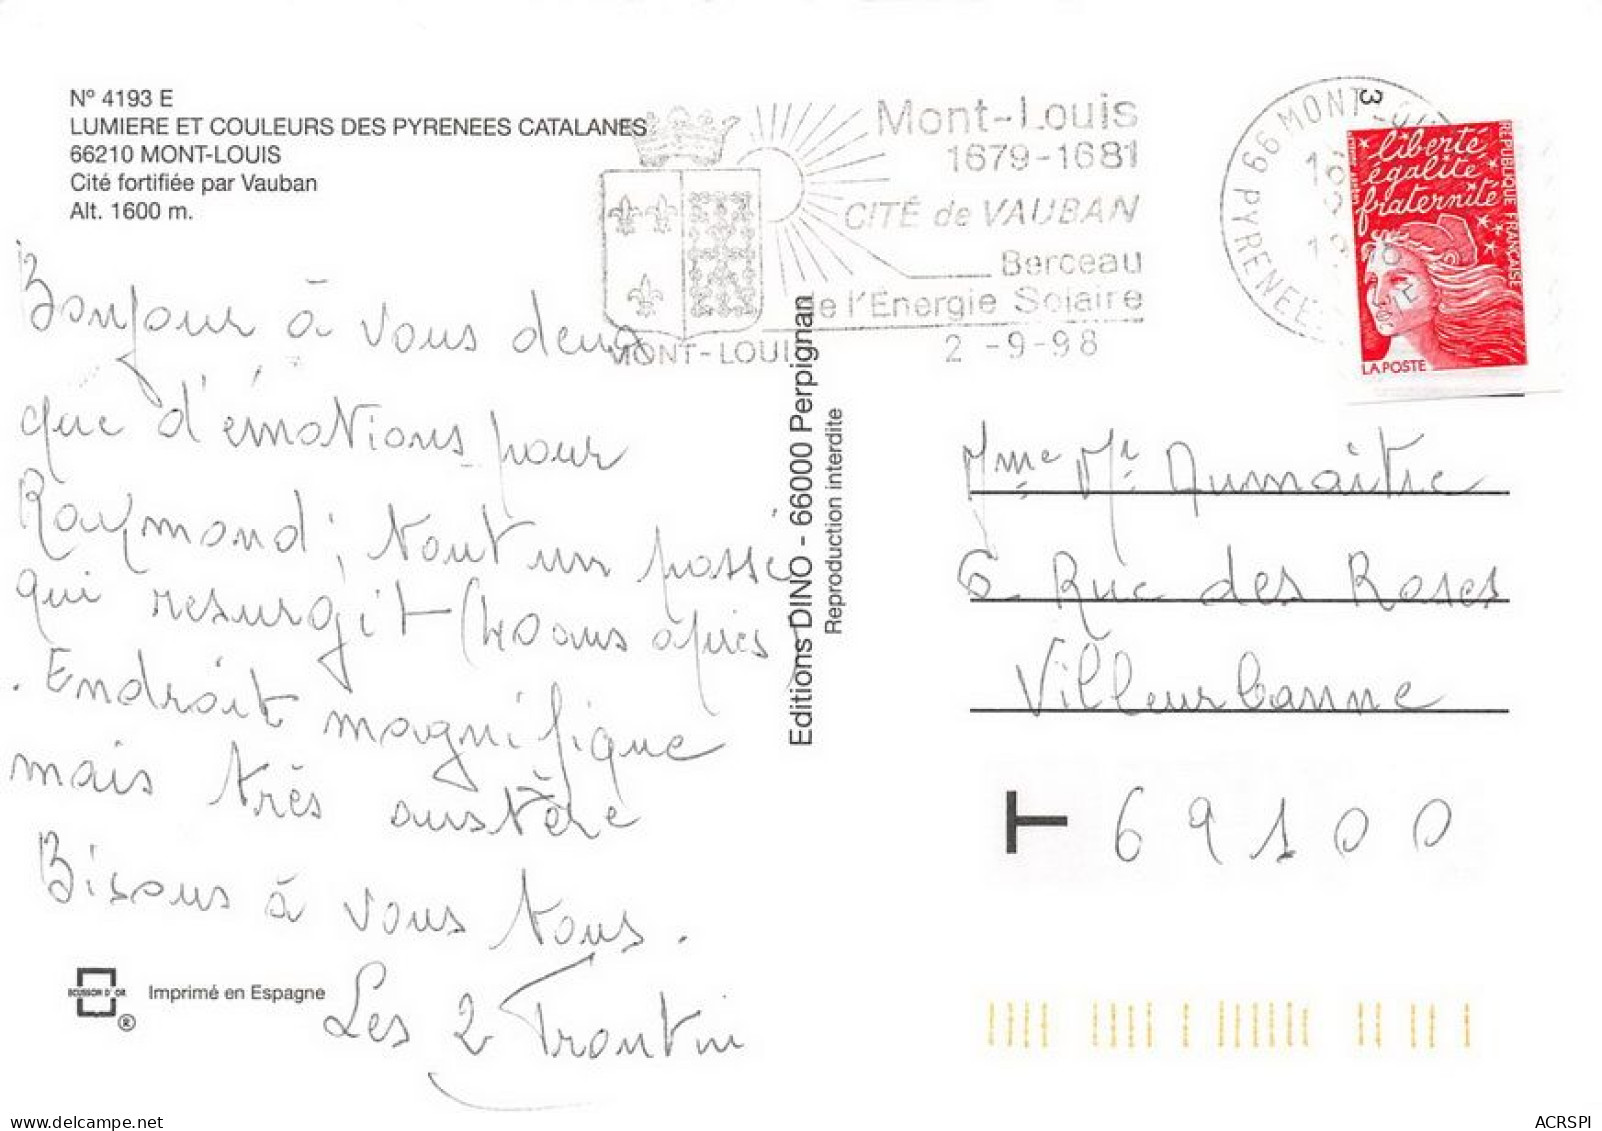 N° 4193 E
LUMIERE ET COULEURS DES PYRENEES CATALANES
66210 MONT-LOUIS
Cité fortifiée par Vauban
Alt. 1600 m.
Mont-Louis
1679-1681
CITÉ de VAUBAN
Berceau
de l'Énergie Solaire
MONT-LOUIS
2 -9-98
66 MONT-LOUIS
PYRENEES
liberté
égalité
fraternité
REPUBLIQUE FRANÇAISE
LA POSTE
3
Bonjour à vous deux
que d'émotions pour
Raymond ; tout un passé
qui resurgit (40 ans après)
. Endroit magnifique
mais très austère
Bisous à vous tous.
Les 2 Trontin
Editions DINO - 66000 Perpignan
Reproduction interdite
Mme Mr Dumaitre
6 Rue des Roses
Villeurbanne
T
69100
ECUSSON D'OR
®
Imprimé en Espagne
delcampe.net
ACRSPI